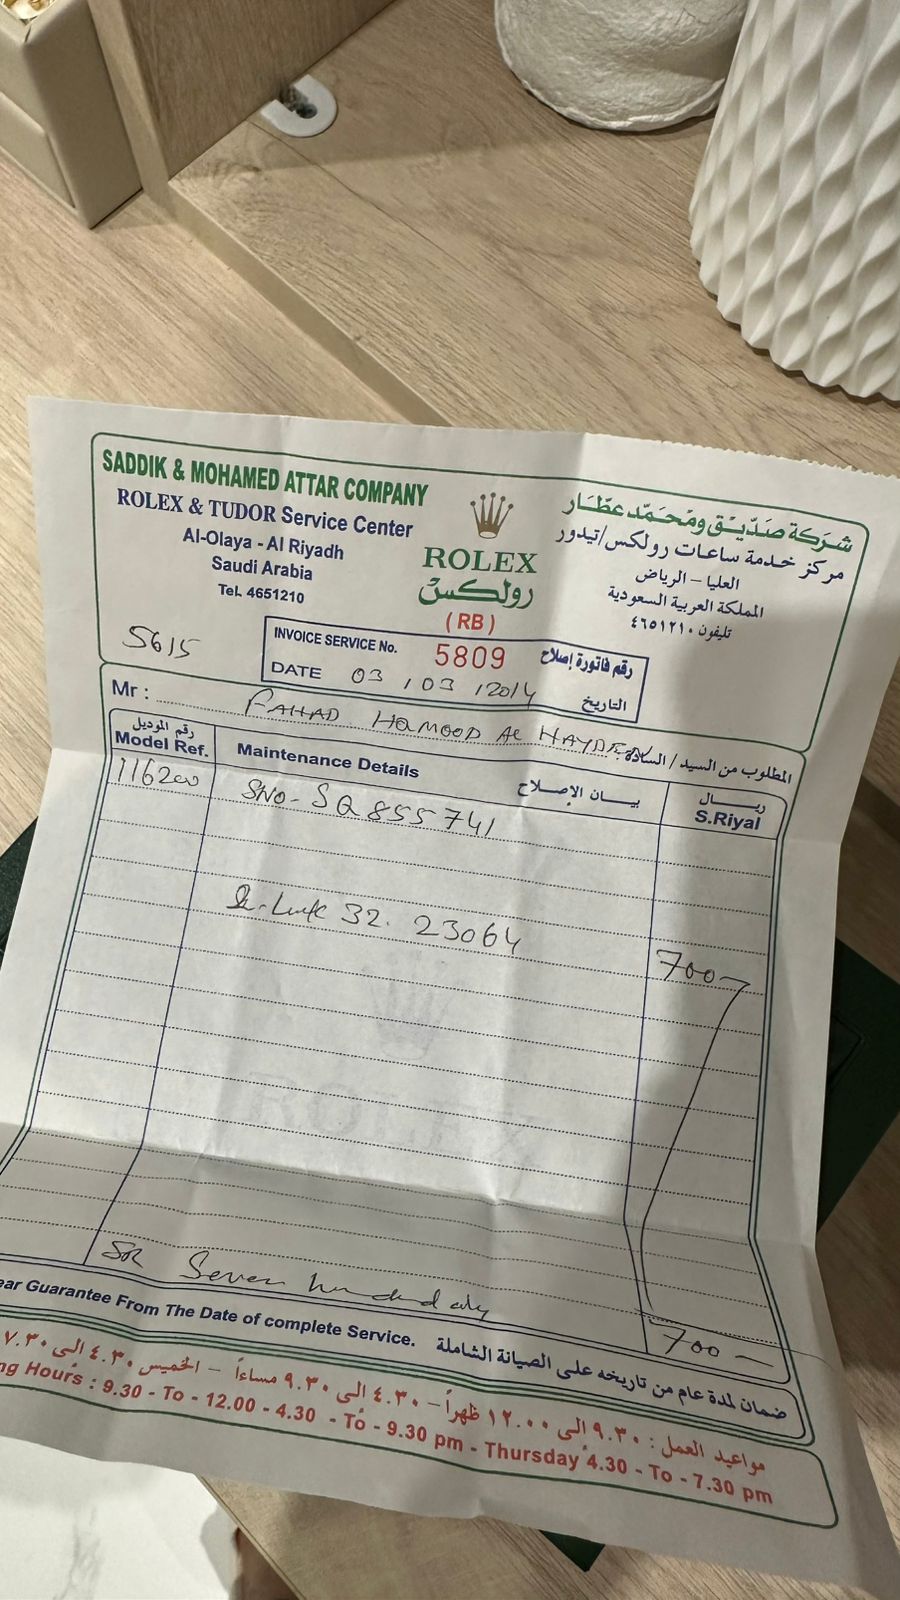 SADDIK & MOHAMED ATTAR COMPANY
ROLEX & TUDOR Service Center
Al-Olaya - Al Riyadh
Saudi Arabia
Tel. 4651210
ROLEX
رولكس
(RB)
شركة صديق ومحمد عطار
مركز خدمة ساعات رولكس/تيدور
العليا - الرياض
المملكة العربية السعودية
تليفون ٤٦٥١٢١٠
5615
INVOICE SERVICE No. 5809 رقم فاتورة إصلاح
DATE 03 / 03 / 2014 التاريخ
Mr : FAHAD HAMOOD Al المطلوب من السيد / السادة
رقم الموديل
Model Ref.
Maintenance Details بيـــان الإصـــلاح
ريـــال
S.Riyal
116200 SNO-SQ 855741
32. 23064 700
ROLEX
SR Seven hundred only
700
ear Guarantee From The Date of complete Service. ضمان لمدة عام من تاريخه على الصيانة الشاملة
مواعيد العمل : ٩.٣٠ إلى ١٢.٠٠ ظهراً - ٤.٣٠ إلى ٩.٣٠ مساءاً - الخميس ٤.٣٠ إلى ٧.٣٠
ng Hours : 9.30 - To - 12.00 - 4.30 - To - 9.30 pm - Thursday 4.30 - To - 7.30 pm